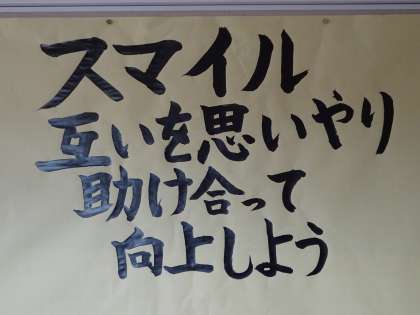 スマイル
互いを思いやり
助け合って
向上しよう